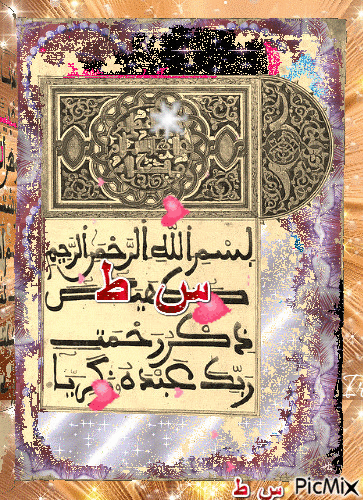 بسم الله الرحمن الرحيم
كهيعص
س ط
ذكر رحمت
ربك عبده زكريا
س ط PicMix